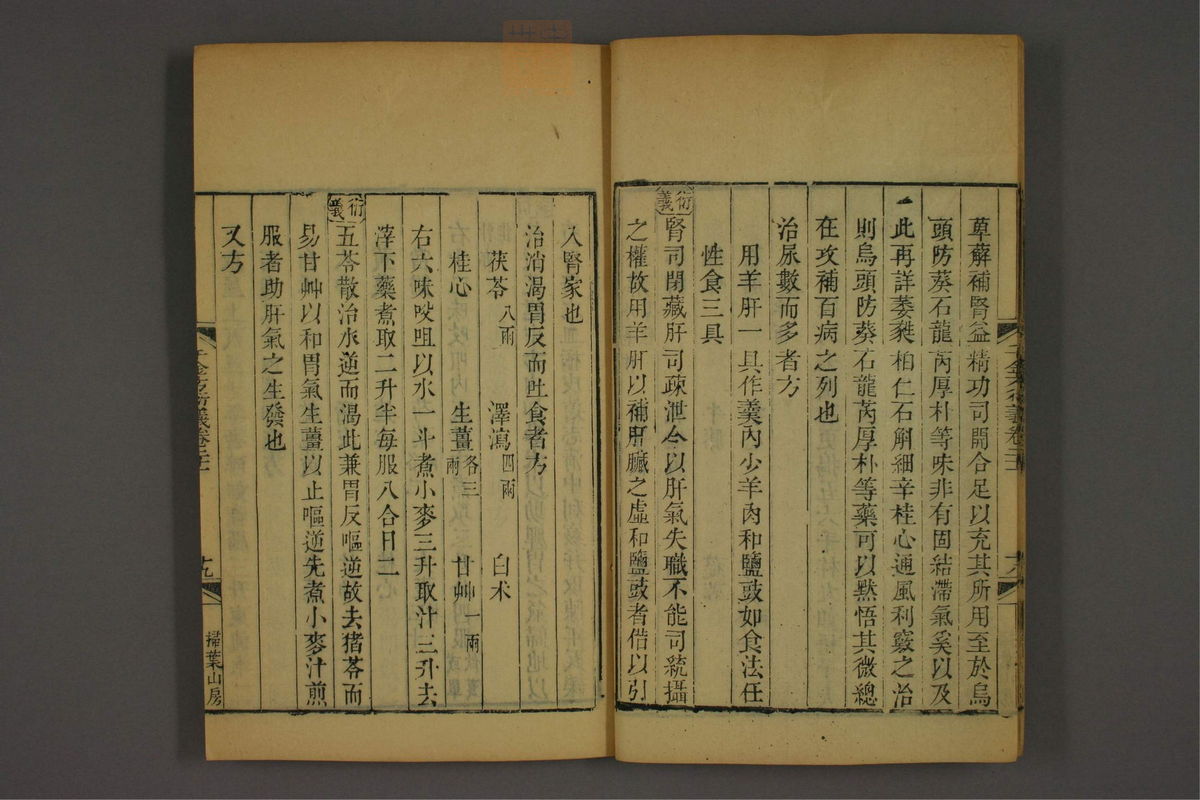 萆薢補腎益精功司開合足以充其所用至於烏
頭防葵石龍芮厚朴等味非有固結滯氣奚以及
此再詳萎蕤柏仁石斛細辛桂心通風利竅之治
則烏頭防葵石龍芮厚朴等藥可以黙悟其微總
在攻補百病之列也
治尿數而多者方
用羊肝一具作羹內少羊肉和鹽豉如食法任
性食三具
衍義
腎司閉藏肝司疎泄今以肝氣失職不能司統攝
之權故用羊肝以補肝臟之虛和鹽豉者借以引
入腎家也
治消渴胃反而吐食者方
茯苓八兩 澤瀉四兩 白朮
桂心 生薑各三兩 甘艸一兩
右六味㕮咀以水一斗煮小麥三升取汁三升去
滓下藥煮取二升半每服八合日二
衍義
五苓散治水逆而渴此兼胃反嘔逆故去猪苓而
易甘艸以和胃氣生薑以止嘔逆先煮小麥汁煎
服者助肝氣之生發也
又方
千金方衍義卷二十一
十九
掃葉山房